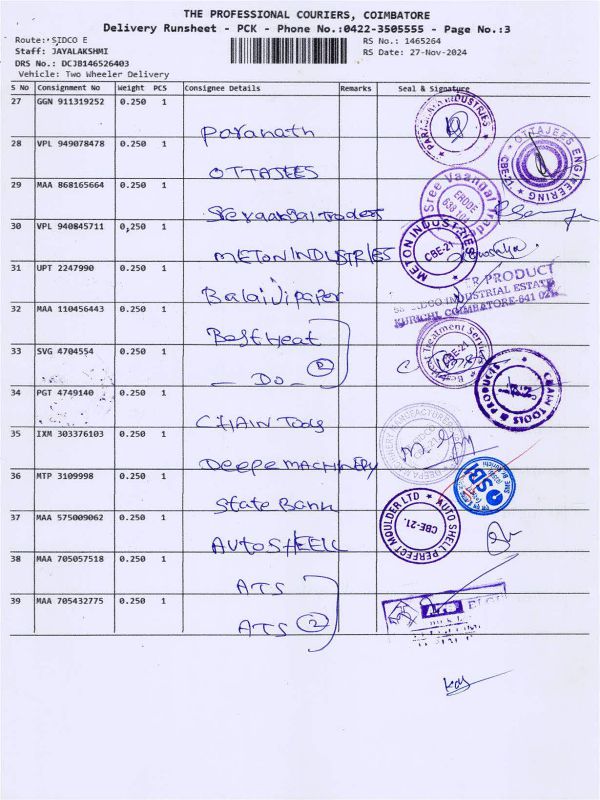 THE PROFESSIONAL COURIERS, COIMBATORE
Delivery Runsheet - PCK - Phone No.:0422-3505555 - Page No.:3
Route: SIDCO E
RS No.: 1465264
Staff: JAYALAKSHMI
RS Date: 27-Nov-2024
DRS No.: DCJB146526403
Vehicle: Two Wheeler Delivery
S No Consignment No Weight PCS Consignee Details Remarks Seal & Signature
27 GGN 911319252 0.250 1
Paranath
28 VPL 949078478 0.250 1
OTTAJEES
OTTAJEES ENGINEERING
CBE-21
29 MAA 868165664 0.250 1
Sree Vaangai
ERODE
30 VPL 940845711 0,250 1
METON INDUSTRIES
METON INDUSTRIES
CBE-21
31 UPT 2247990 0.250 1
Balaji paper
PRODUCT
INDUSTRIAL ESTATE
KURICHI, COIMBATORE-641 021
32 MAA 110456443 0.250 1
Best Heat
Treatment Service
CBE-21
33 SVG 4704554 0.250 1
- DO - 2
34 PGT 4749140 0.250 1
CHAIN TOOLS
CHAIN TOOLS & PRODUCTS
35 IXM 303376103 0.250 1
DEEPE MACHINERY
36 MTP 3109998 0.250 1
State Bank
SBI
37 MAA 575009062 0.250 1
AUTO SHELL
AUTO SHELL PERFECT MOULDER LTD
CBE-21.
38 MAA 705057518 0.250 1
ATS
39 MAA 705432775 0.250 1
ATS 2